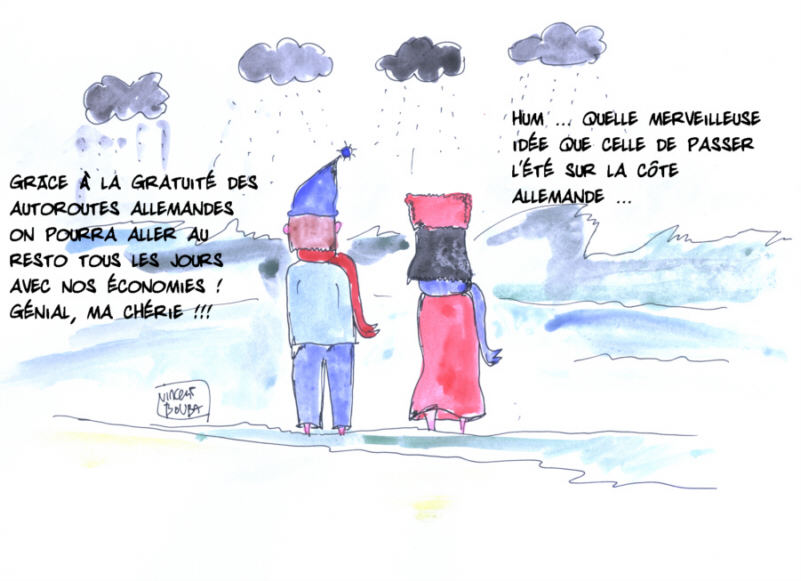 GRÂCE À LA GRATUITÉ DES
AUTOROUTES ALLEMANDES
ON POURRA ALLER AU
RESTO TOUS LES JOURS
AVEC NOS ÉCONOMIES !
GÉNIAL, MA CHÉRIE !!!
HUM ... QUELLE MERVEILLEUSE
IDÉE QUE CELLE DE PASSER
L'ÉTÉ SUR LA CÔTE
ALLEMANDE ...
VINCENT
BOUBA